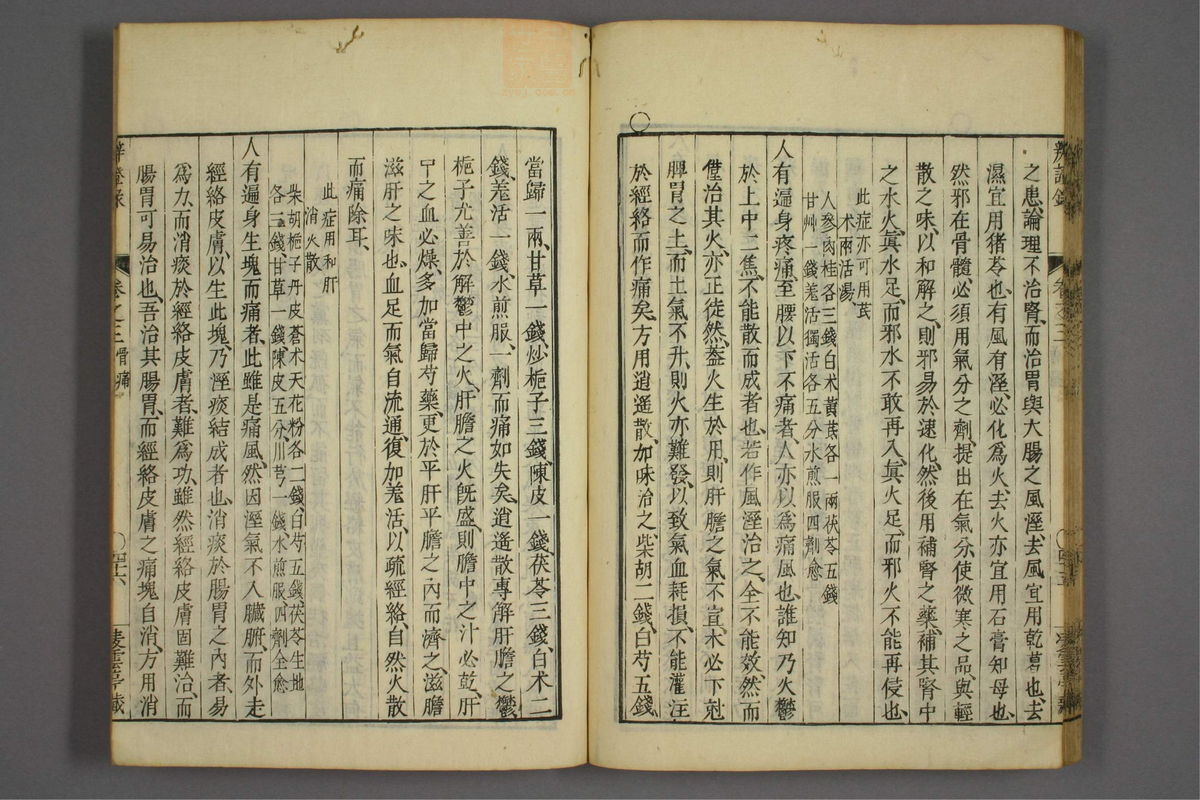 之患、論理不治腎、而治胃與大腸之風溼、去風宜用乾葛也、去
濕宜用猪苓也、有風有溼、必化爲火、去火亦宜用石膏知母也、
然邪在骨髓、必須用氣分之劑、提出在氣分、使微寒之品、與輕
散之味、以和解之、則邪易於速化、然後用補腎之藥、補其腎中
之水火、眞水足、而邪水不敢再入、眞火足、而邪火不能再侵也、
此症亦可用芪
朮兩活湯
人參肉桂各三錢白朮黃芪各一兩茯苓五錢
甘艸一錢羗活獨活各五分水煎服四劑愈
人有遍身疼痛、至腰以下不痛者、人亦以爲痛風也、誰知乃火鬱
於上中二焦、不能散而成者也、若作風溼治之、全不能效、然而
僅治其火、亦正徒然、蓋火生於鬱、則肝膽之氣不宣、木必下尅
脾胃之土、而土氣不升、則火亦難發、以致氣血耗損、不能灌注
於經絡而作痛矣、方用逍遙散、加味治之、柴胡二錢、白芍五錢、
當歸一兩、甘草一錢、炒梔子三錢、陳皮一錢、茯苓三錢、白朮二
錢、羗活一錢、水煎服、一劑而痛如失矣、逍遙散專解肝膽之鬱、
梔子尤善於解鬱中之火、肝膽之火旣盛、則膽中之汁必乾、肝
中之血必燥、多加當歸芍藥、更於平肝平膽之內而濟之、滋膽
滋肝之味也、血足而氣自流通、復加羗活、以疏經絡、自然火散
而痛除耳、
此症用和肝
消火散
柴胡梔子丹皮蒼朮天花粉各二錢、白芍五錢茯苓生地
各三錢、甘草一錢、陳皮五分、川芎一錢、水煎服四劑全愈
人有遍身生塊而痛者、此雖是痛風、然因溼氣不入臟腑、而外走
經絡皮膚、以生此塊、乃溼痰結成者也、消痰於腸胃之內者、易
爲力、而消痰於經絡皮膚者、難爲功、雖然經絡皮膚固難治、而
腸胃可易治也、吾治其腸胃、而經絡皮膚之痛塊自消、方用消
卷之三 骨痛
四六